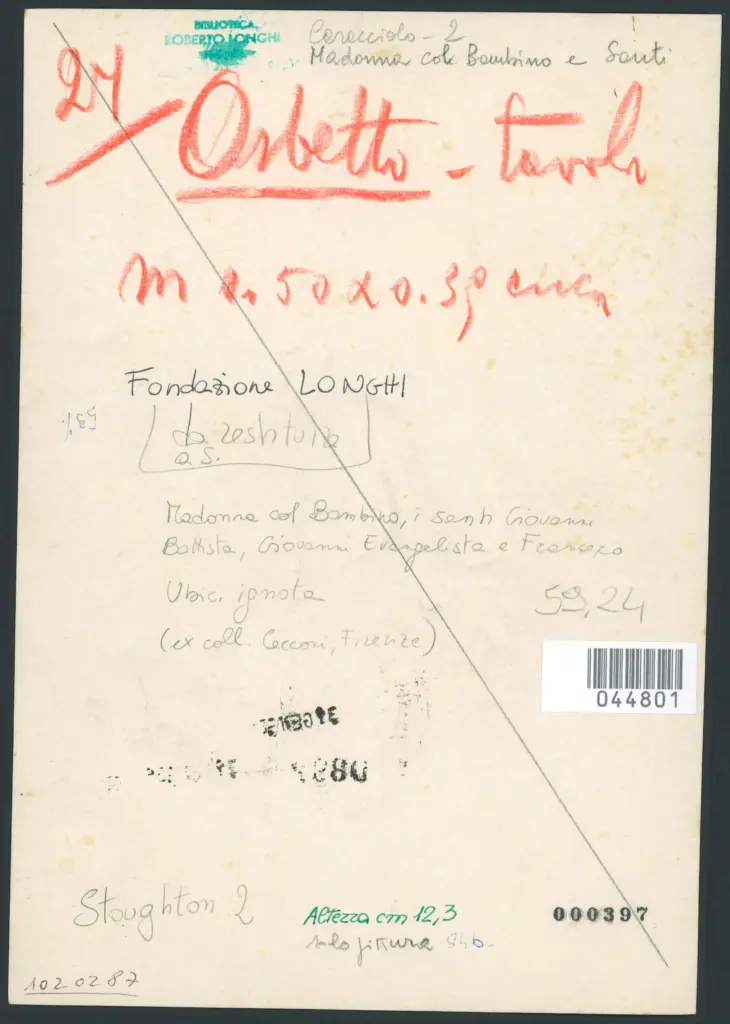 BIBLIOTECA
ROBERTO LONGHI
Caracciolo - 2
Madonna col Bambino e Santi
27/ Orbetto - tavola
m 0.50 x 0.39 circa
Fondazione LONGHI
da restituire
a S.
Madonna col Bambino, i santi Giovanni
Battista, Giovanni Evangelista e Francesco
Ubic. ignota
59,24
(ex coll. Cecconi, Firenze)
044801
Stoughton 2
Altezza cm 12,3
solo pittura
000397
1020287